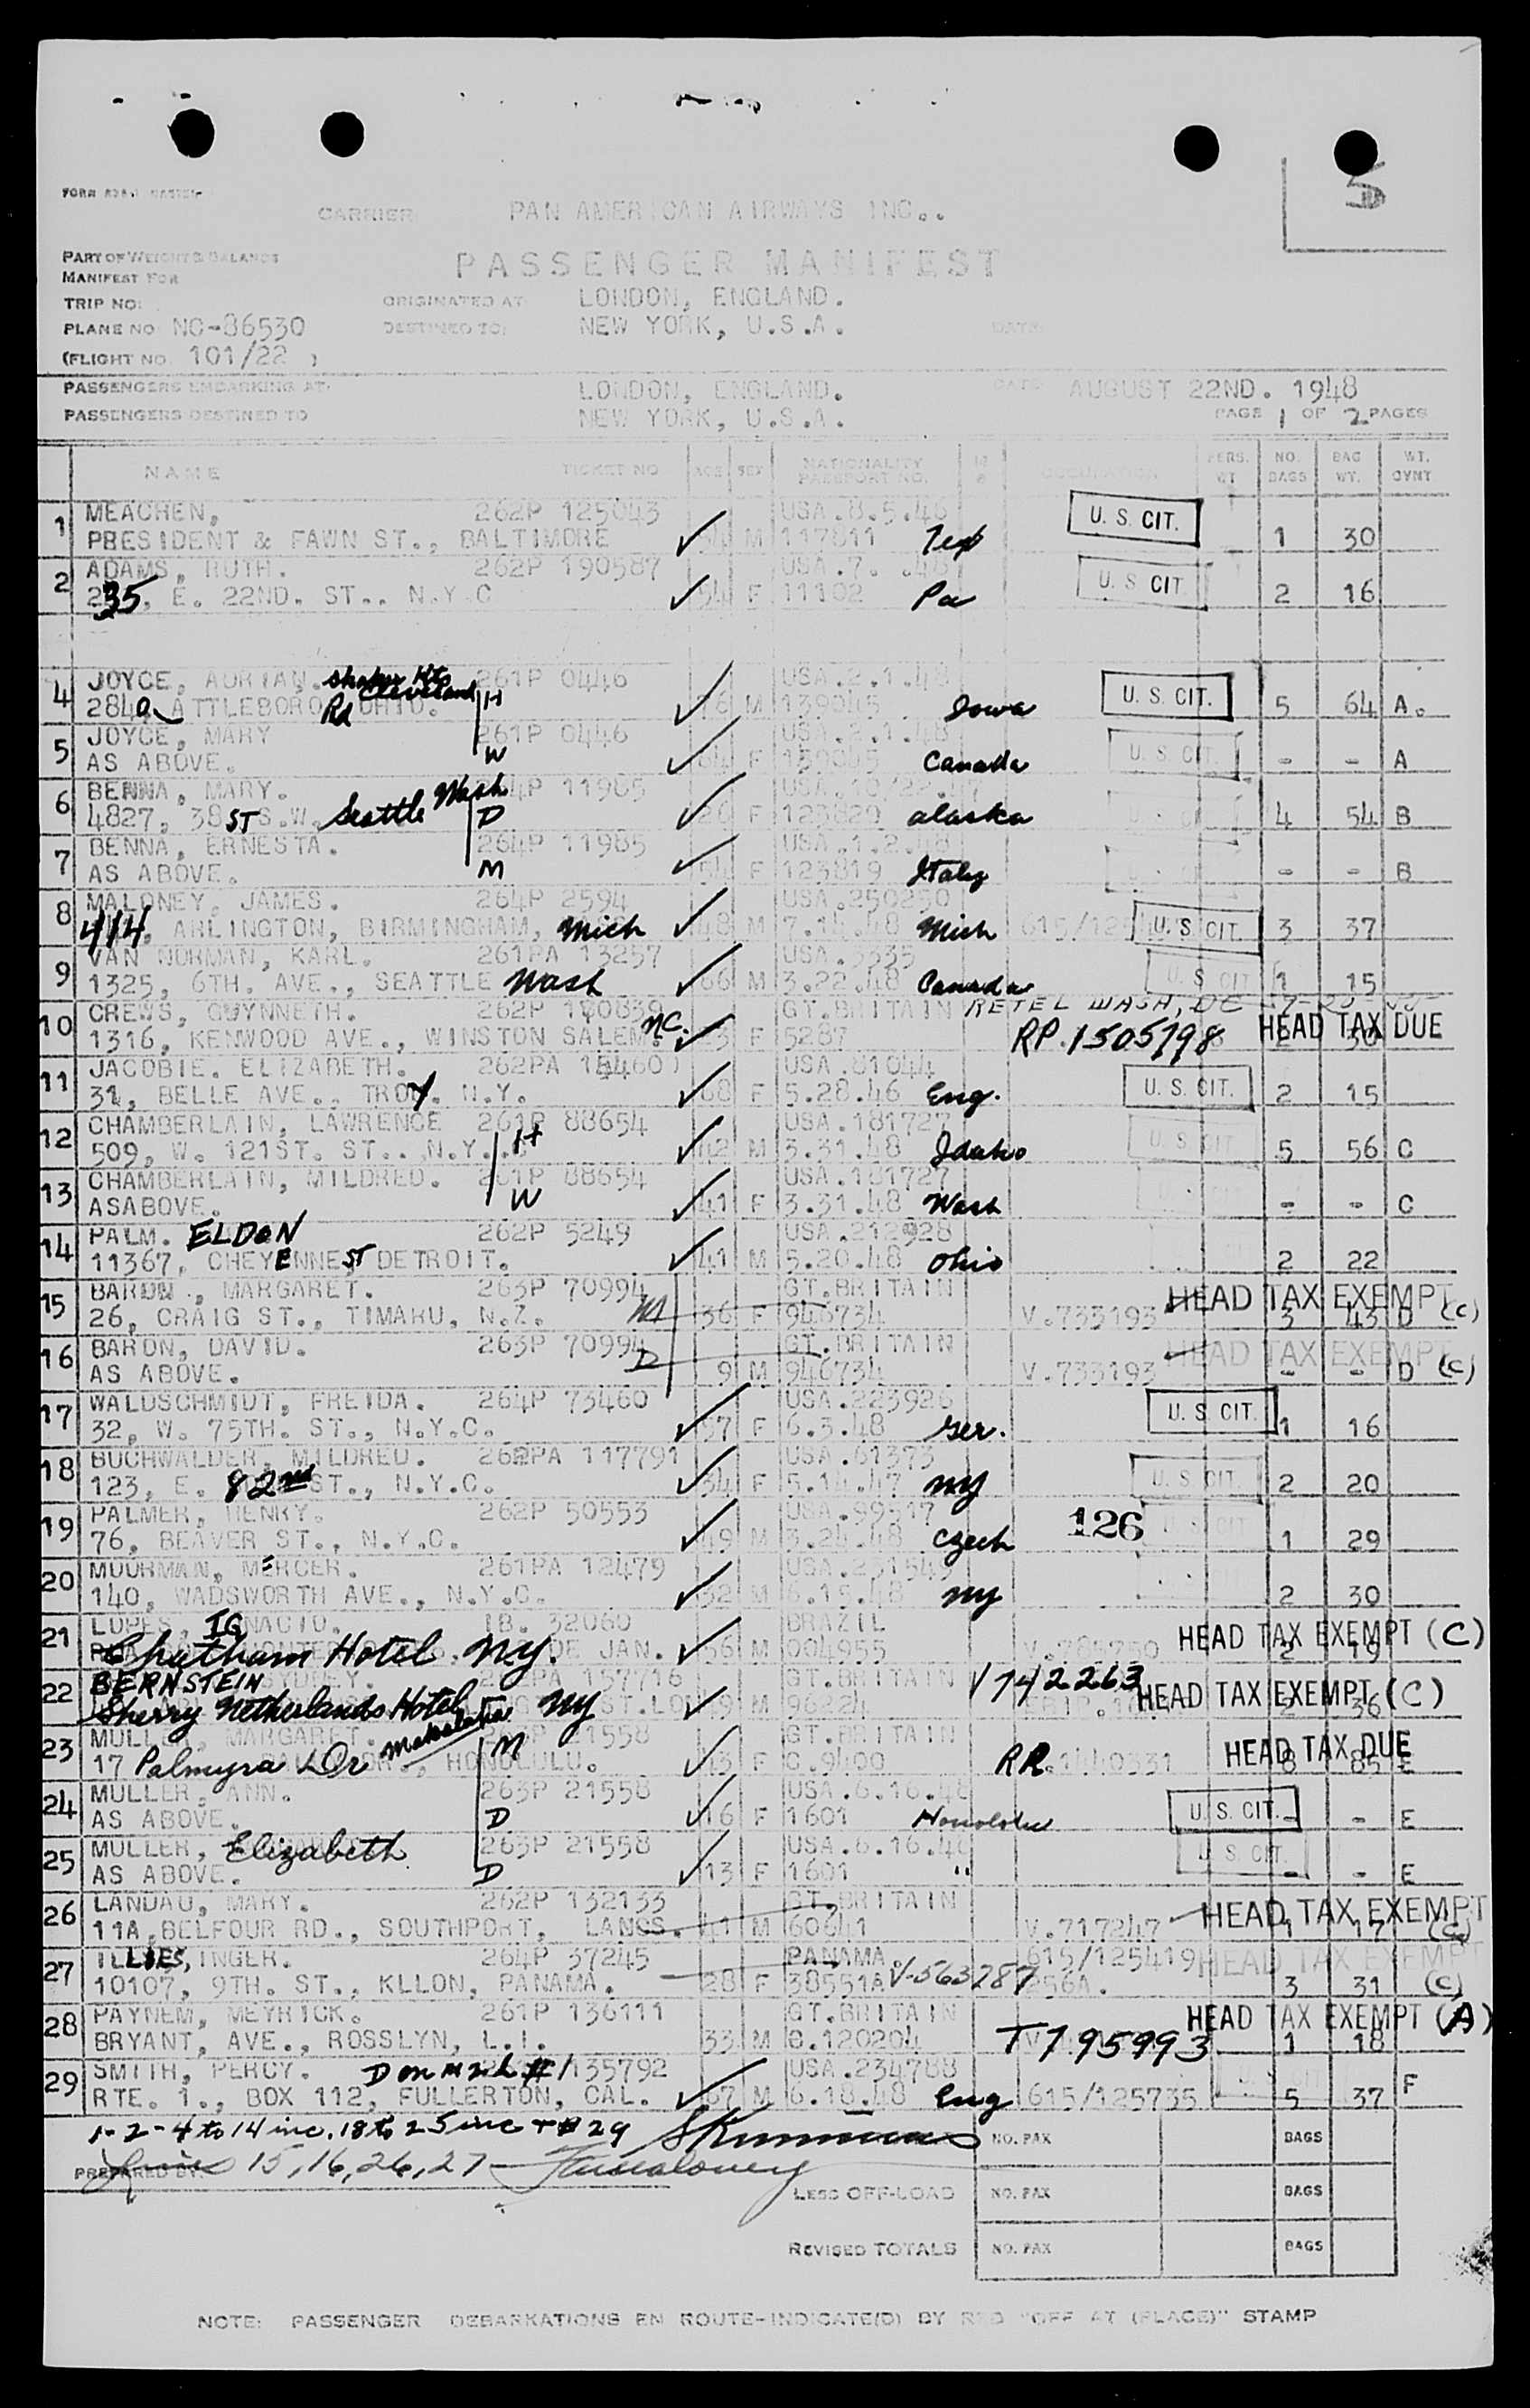 5
CARRIER PAN AMERICAN AIRWAYS INC..
PART OF WEIGHT & BALANCE
MANIFEST FOR
PASSENGER MANIFEST
TRIP NO: ORIGINATED AT LONDON, ENGLAND.
PLANE NO NC-86530 DESTINED TO: NEW YORK, U.S.A. DATE
(FLIGHT NO. 101/22 )
PASSENGERS EMBARKING AT: LONDON, ENGLAND. DATE AUGUST 22ND. 1948
PASSENGERS DESTINED TO NEW YORK, U.S.A. PAGE 1 OF 2 PAGES
NAME TICKET NO AGE SEX NATIONALITY PASSPORT NO. OCCUPATION PERS. WT NO. BAGS BAG WT. WT. CVNT
1 MEACHEN, 262P 125043 USA.8.5.46 U. S. CIT.
PRESIDENT & FAWN ST., BALTIMORE M 117811 1 30
2 ADAMS, RUTH. 262P 190587 U. S. CIT
235, E. 22ND. ST.. N.Y.C 54 F 11102 Pa 2 16
4 JOYCE, ADRIAN. Shaker Hts Cleveland 261P 0446 USA.2.1.48 U. S. CIT.
2840 ATTLEBORO Rd OHIO. H M 139045 Iowa 5 64 A.
5 JOYCE, MARY 261P 0446 USA.2.1.48 U. S. CIT.
AS ABOVE. W F Canada - - A
6 BENNA, MARY. 264P 11985
4827, 38 ST S.W. Seattle Wash D F 123829 alaska 4 54 B
7 BENNA, ERNESTA. 264P 11985 USA.1.2.48
AS ABOVE. M 54 F 123819 Italy - - B
8 MALONEY, JAMES. 264P 2594 USA.250290 U. S. CIT.
414, ARLINGTON, BIRMINGHAM, Mich 48 M Mich 3 37
9 VAN NORMAN, KARL. 261PA 13257 USA.5535 U. S. CIT
1325, 6TH. AVE., SEATTLE Wash 66 M 3.22.48 Canada 1 15
10 CREWS, GWYNNETH. 262P GT.BRITAIN RETEL WASH, DC
1316, KENWOOD AVE., WINSTON SALEM. N.C. F 5287 RP.1505798 HEAD TAX DUE
11 JACOBIE. ELIZABETH. 262PA USA.81044 U. S. CIT.
31, BELLE AVE.. TROY. N.Y. 68 F 5.28.46 Eng. 2 15
12 CHAMBERLAIN, LAWRENCE 261P 88654 USA.181727 U. S. CIT.
509, W. 121ST. ST.. N.Y.C H 42 M 3.31.48 Idaho 5 56 C
13 CHAMBERLAIN, MILDRED. 261P 88654 USA.181727
ASABOVE. W 41 F 3.31.48 Wash - - C
14 PALM. ELDON 262P 5249 USA.212928
11367, CHEYENNE ST DETROIT. 41 M 5.20.48 Ohio 2 22
15 BARON ., MARGARET. 263P 70994 GT.BRITAIN HEAD TAX EXEMPT
26, CRAIG ST., TIMARU, N.Z. M 36 F 946734 V.733193 3 43 D (C)
16 BARON, DAVID. 263P 70994 GT.BRITAIN HEAD TAX EXEMPT
AS ABOVE. D 9 M 946734 V.733193 - - D (C)
17 WALDSCHMIDT, FREIDA. 264P 73460 USA.223926 U. S. CIT.
32, W. 75TH. ST., N.Y.C. 57 F 6.3.48 Ger. 1 16
18 BUCHWALDER, MILDRED. 262PA 117791 USA.61373 U. S. CIT.
123, E. 82nd ST., N.Y.C. 34 F 5.14.47 NY 2 20
19 PALMER, HENRY. 262P 50553 USA.99517 126 U. S. CIT
76, BEAVER ST., N.Y.C. 49 M 3.24.48 Czech 1 29
20 MOORMAN, MERCER. 261PA 12479
140, WADSWORTH AVE., N.Y.C. 32 M 6.15.48 NY 2 30
21 LOPES, IGNACIO. IB. 32060 BRAZIL HEAD TAX EXEMPT (C)
Chatham Hotel NY. DE JAN. 56 M 004955 2 19
22 BERNSTEIN 157716 GT.BRITAIN V742263 HEAD TAX EXEMPT (C)
Sherry Netherlands Hotel NY M 36
23 MULLER, MARGARET. 21558 GT.BRITAIN HEAD TAX DUE
17 Palmyra Dr HONOLULU. M F C.9400 RP.1440331 8 85 E
24 MULLER, ANN. 263P 21558 USA.6.16.48 U. S. CIT.
AS ABOVE. D 16 F 1601 Honolulu - - E
25 MULLER, Elizabeth 263P 21558 USA.6.16.48 U. S. CIT.
AS ABOVE. D 13 F 1601 " - - E
26 LANDAU, MARY. 262P 132133 GT.BRITAIN HEAD TAX EXEMPT
11A, BELFOUR RD., SOUTHPORT, LANCS. 41 M 60641 V.717247 1 17 (C)
27 ILLIES, INGER. 264P 37245 PANAMA. 615/125419 HEAD TAX EXEMPT
10107, 9TH. ST., KLLON, PANAMA. 28 F 38551A V-563787 256A. 3 31 (C)
28 PAYNEM, MEYRICK. 261P 136111 GT.BRITAIN HEAD TAX EXEMPT (A)
BRYANT, AVE., ROSSLYN, L.I. 33 M C.120204 T795993 1 18
29 SMITH, PERCY. 135792 USA.234788
RTE. 1., BOX 112, FULLERTON, CAL. 67 M 6.18.48 Eng 615/125735 5 37 F
1-2-4 to 14 inc. 18 to 25 inc + 29
PREPARED BY: Lines 15, 16, 26, 27
NO. PAX BAGS
LESS OFF-LOAD NO. PAX BAGS
REVISED TOTALS NO. PAX BAGS
NOTE: PASSENGER DEBARKATIONS EN ROUTE-INDICATE(D) BY RED "OFF AT (PLACE)" STAMP